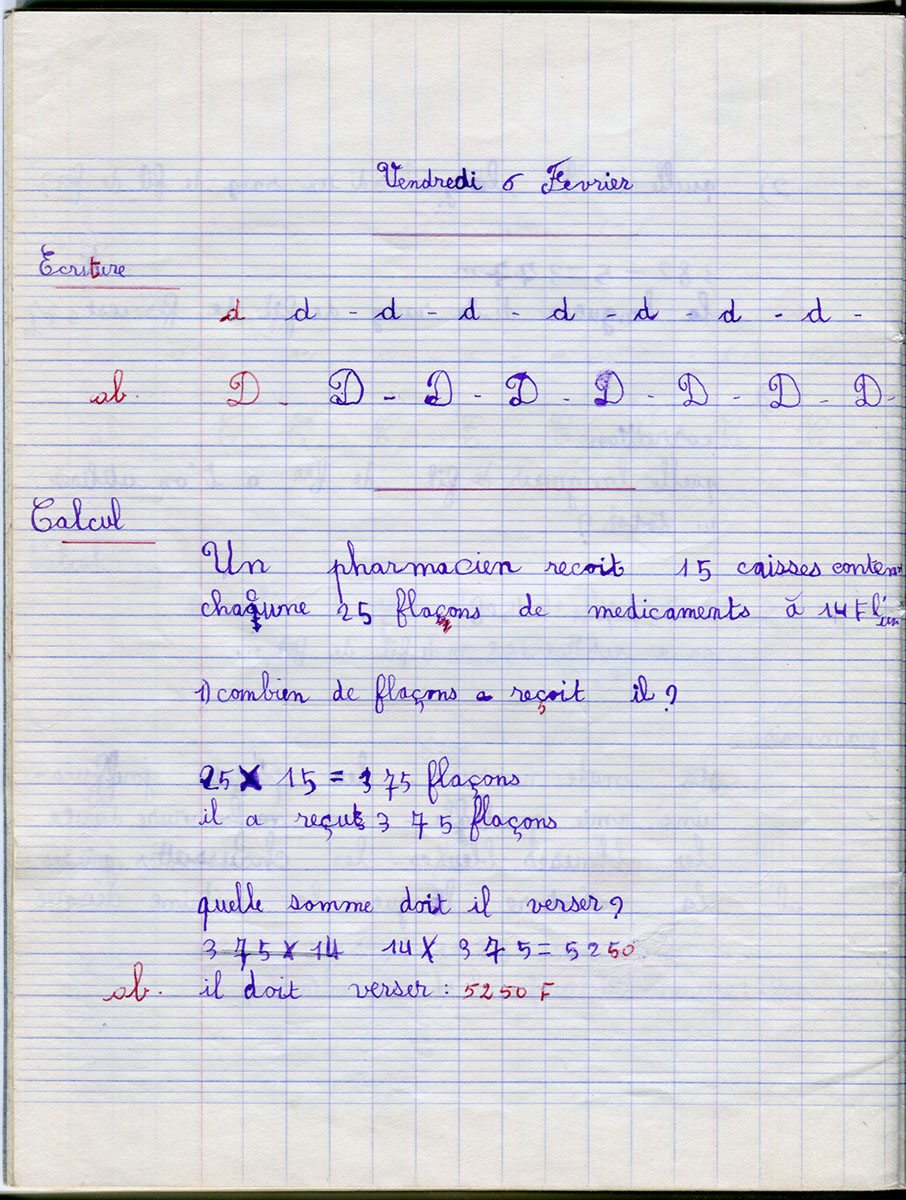 Vendredi 6 Fevrier
Ecriture
d d - d - d - d - d - d - d -
ab. D - D - D - D - D - D - D - D -
Calcul
Un pharmacien recoit 15 caisses conten
chaqune 25 flaçons de medicaments à 14 F l'un
1) combien de flaçons a reçoit il ?
25 X 15 = 375 flaçons
il a reçut 375 flaçons
quelle somme doit il verser ?
375 x 14 14 X 375 = 5250
ab. il doit verser : 5250 F